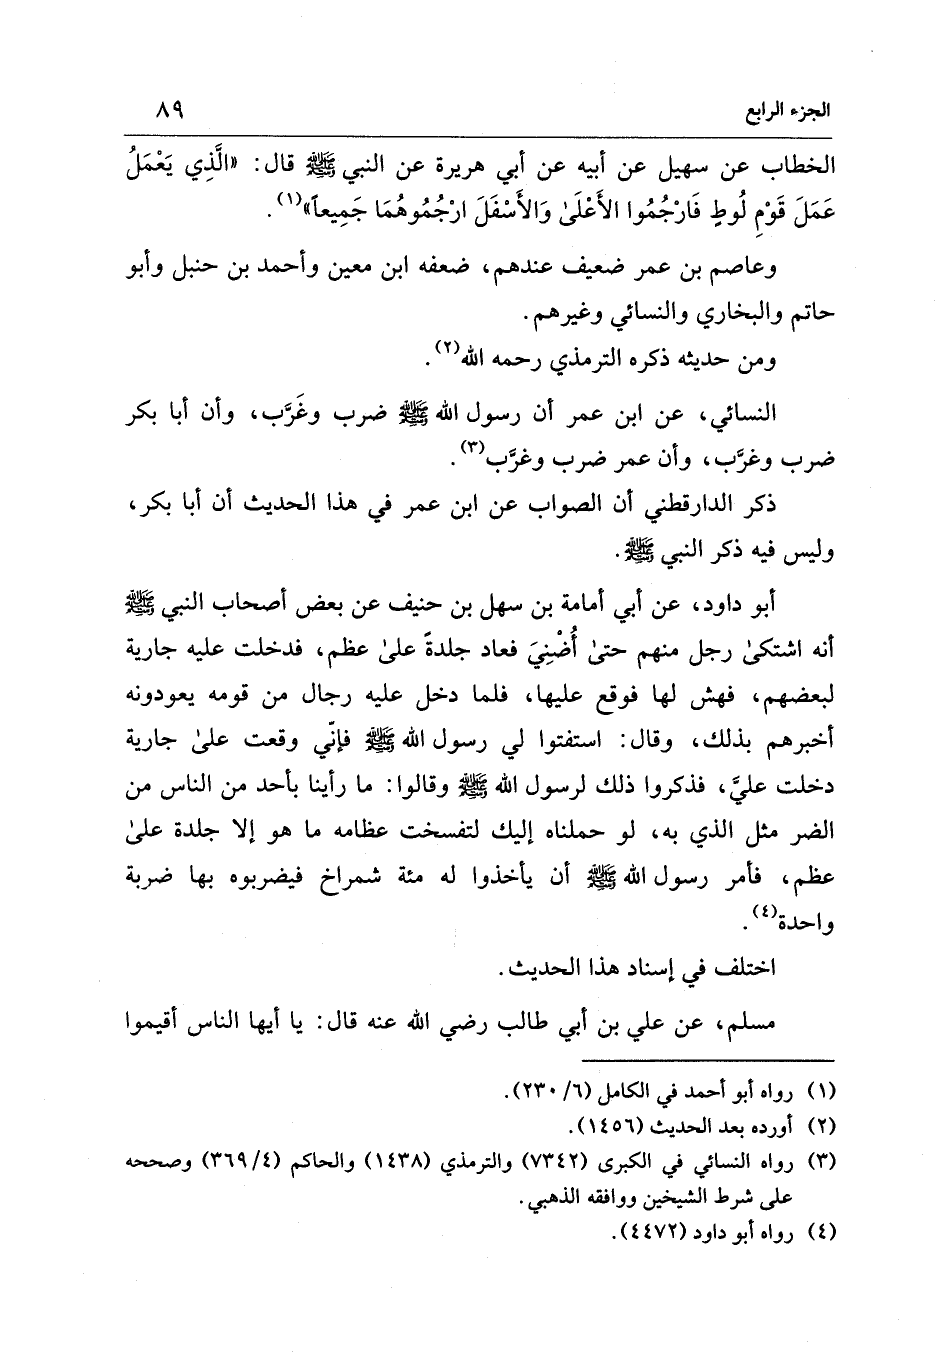 الجزء الرابع ٨٩
الخطاب عن سهيل عن أبيه عن أبي هريرة عن النبي ﷺ قال: «الَّذِي يَعْمَلُ
عَمَلَ قَوْمِ لُوطٍ فَارْجُمُوا الأَعْلَىٰ وَالأَسْفَلَ ارْجُمُوهُمَا جَمِيعاً»(١).
وعاصم بن عمر ضعيف عندهم، ضعفه ابن معين وأحمد بن حنبل وأبو
حاتم والبخاري والنسائي وغيرهم.
ومن حديثه ذكره الترمذي رحمه الله(٢).
النسائي، عن ابن عمر أن رسول الله ﷺ ضرب وغَرَّب، وأن أبا بكر
ضرب وغرَّب، وأن عمر ضرب وغرَّب(٣).
ذكر الدارقطني أن الصواب عن ابن عمر في هذا الحديث أن أبا بكر،
وليس فيه ذكر النبي ﷺ.
أبو داود، عن أبي أمامة بن سهل بن حنيف عن بعض أصحاب النبي ﷺ
أنه اشتكىٰ رجل منهم حتىٰ أُضْنِيَ فعاد جلدةً علىٰ عظم، فدخلت عليه جارية
لبعضهم، فهش لها فوقع عليها، فلما دخل عليه رجال من قومه يعودونه
أخبرهم بذلك، وقال: استفتوا لي رسول الله ﷺ فإنّي وقعت علىٰ جارية
دخلت عليَّ، فذكروا ذلك لرسول الله ﷺ وقالوا: ما رأينا بأحد من الناس من
الضر مثل الذي به، لو حملناه إليك لتفسخت عظامه ما هو إلا جلدة علىٰ
عظم، فأمر رسول الله ﷺ أن يأخذوا له مئة شمراخ فيضربوه بها ضربة
واحدة(٤).
اختلف في إسناد هذا الحديث.
مسلم، عن علي بن أبي طالب رضي الله عنه قال: يا أيها الناس أقيموا
(١) رواه أبو أحمد في الكامل (٦/ ٢٣٠).
(٢) أورده بعد الحديث (١٤٥٦).
(٣) رواه النسائي في الكبرى (٧٣٤٢) والترمذي (١٤٣٨) والحاكم (٤/ ٣٦٩) وصححه
على شرط الشيخين ووافقه الذهبي.
(٤) رواه أبو داود (٤٤٧٢).